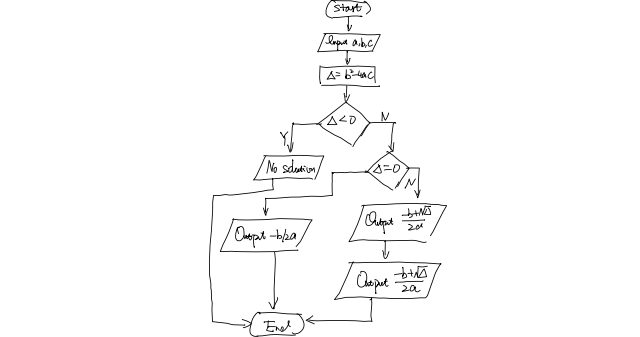 Start
Input a,b,c
Δ=b²-4ac
Δ<0
N
Y
No solution
Δ=0
N
Output -b/2a
Output (-b+√Δ)/2a
Output (-b+√Δ)/2a
End